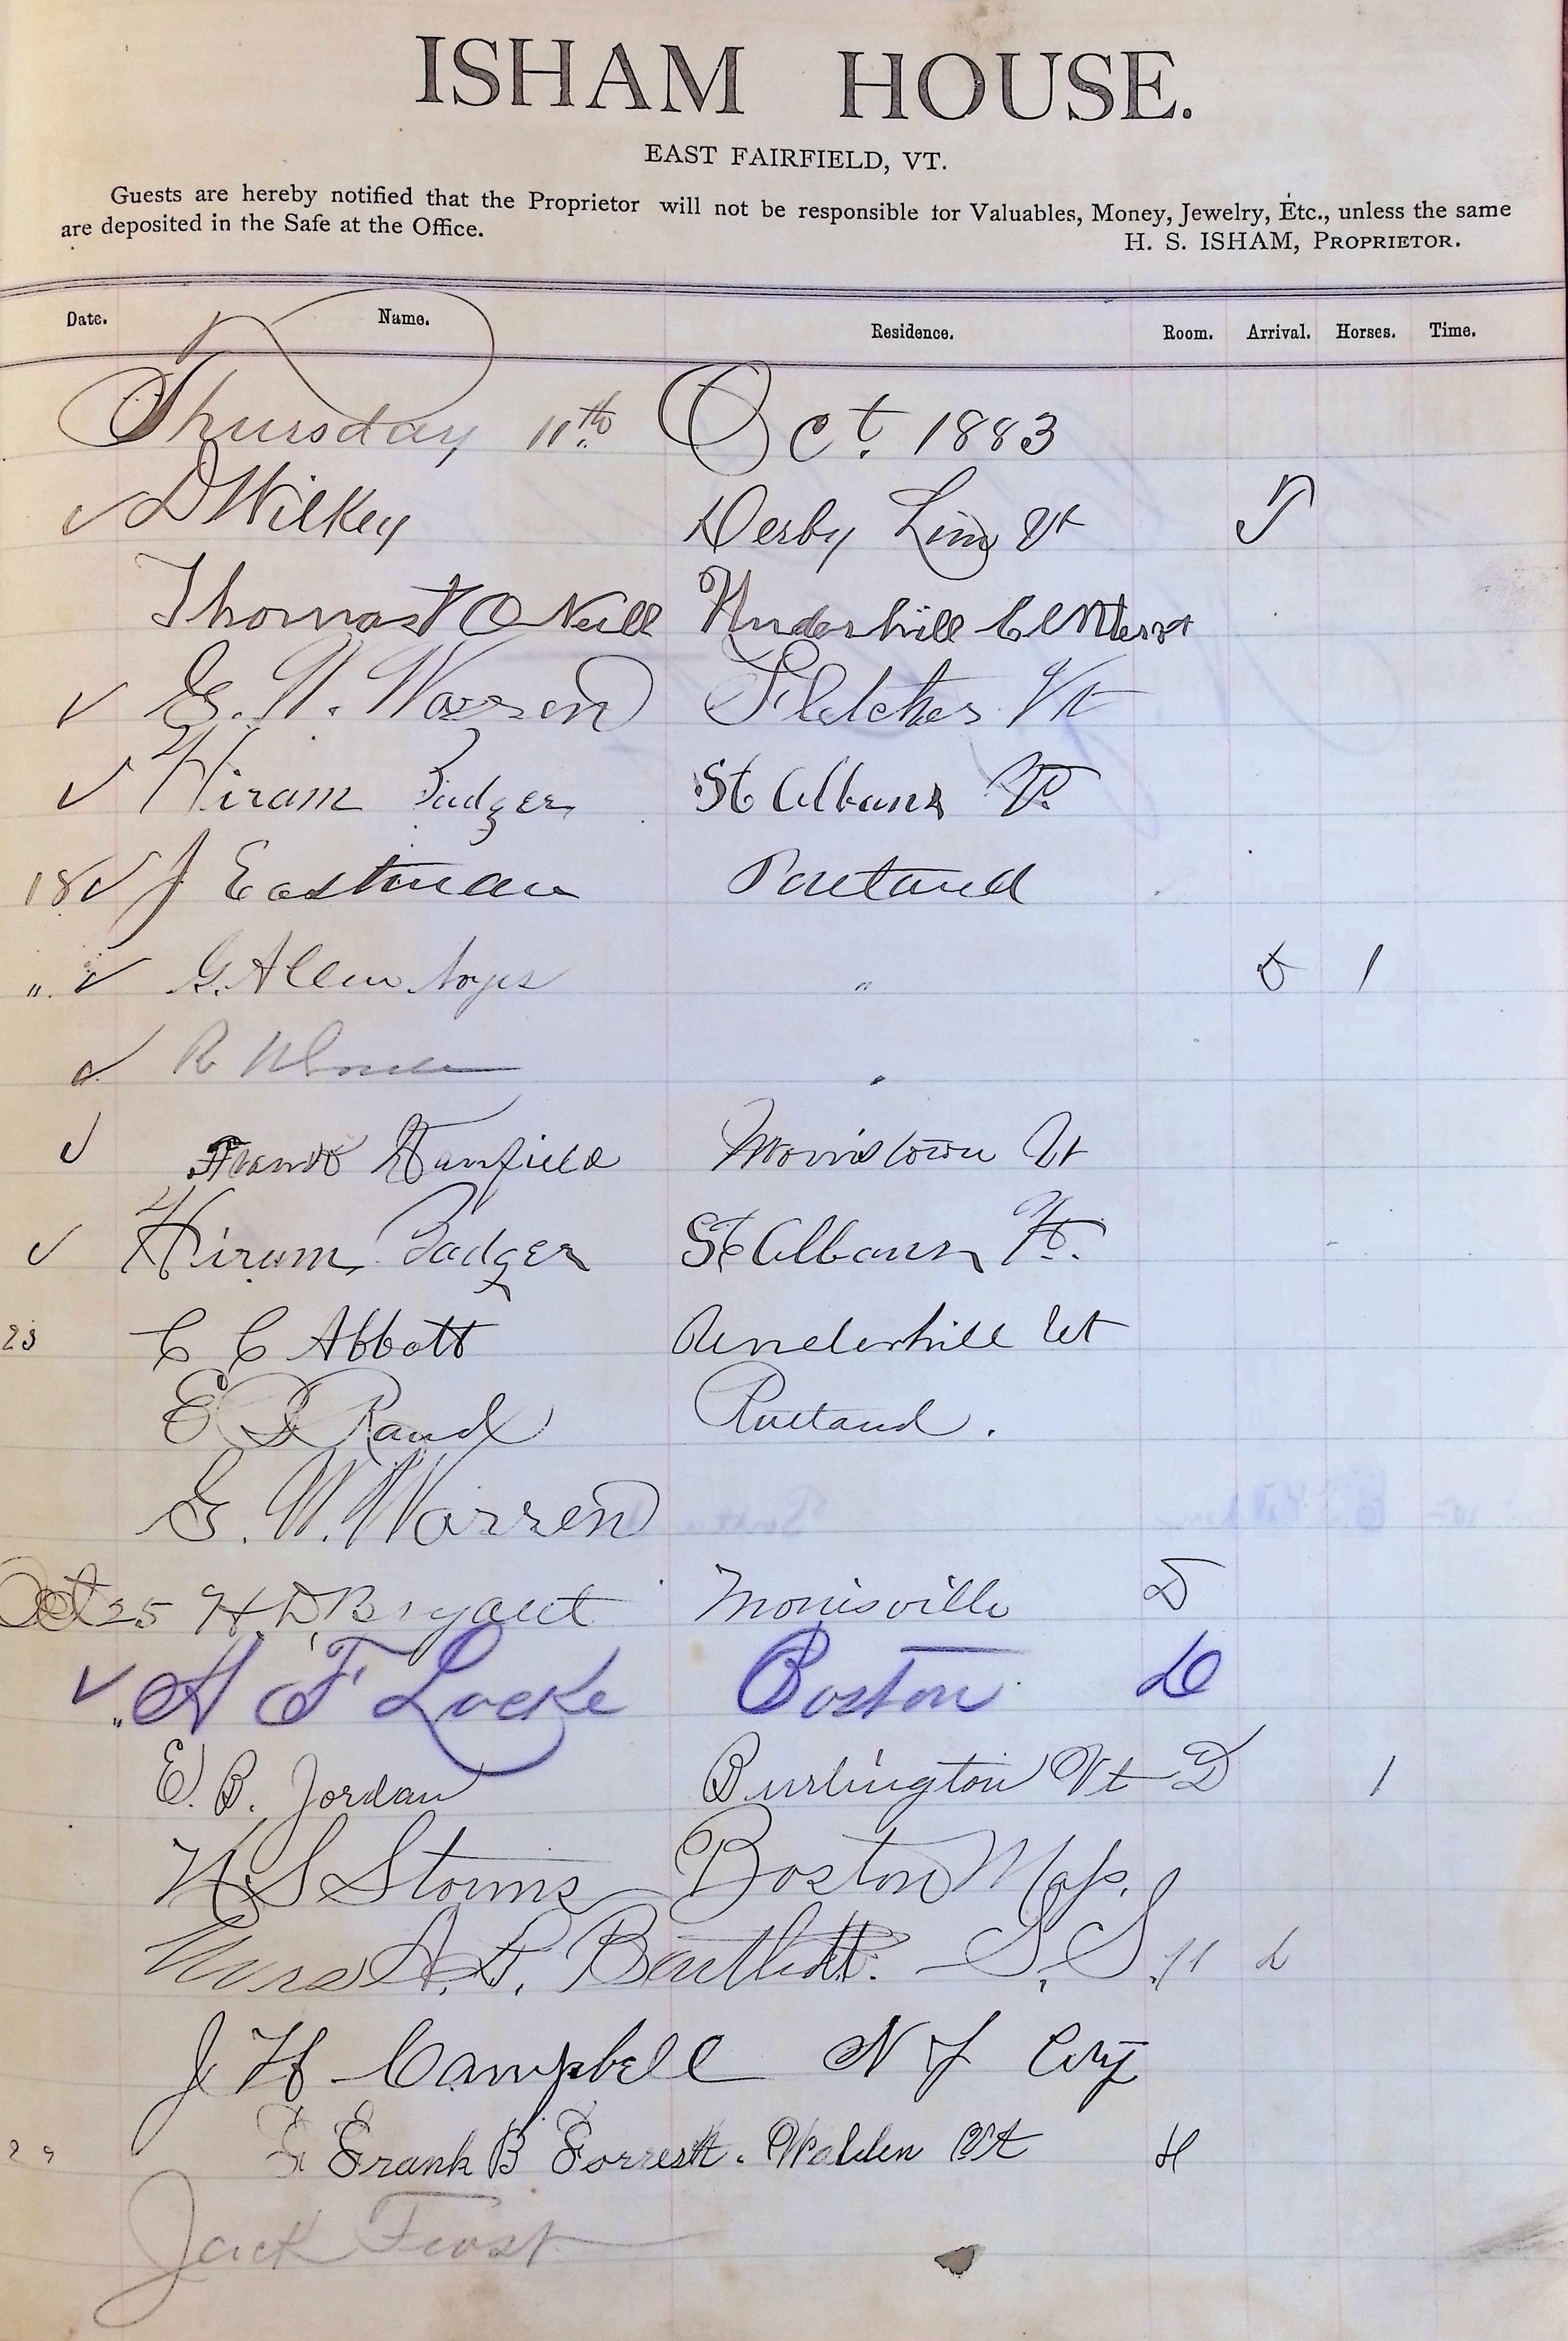 ISHAM HOUSE.
EAST FAIRFIELD, VT.
Guests are hereby notified that the Proprietor will not be responsible for Valuables, Money, Jewelry, Etc., unless the same
are deposited in the Safe at the Office.
H. S. ISHAM, PROPRIETOR.
Date. Name. Residence. Room. Arrival. Horses. Time.
Thursday 11th Oct. 1883
✓ D Wilkey Derby Line Vt
Thomas O Neill Underhill Center Vt
✓ G. W. Warren Fletcher Vt
✓ Hiram Badger St Albans Vt
18 ✓ J Eastman Rutland
" ✓ G. Allen Noyes " 1
✓ R
✓ Frank Hanfield Morristown Vt
✓ Hiram Badger St Albans Vt.
23 C C Abbott Underhill Vt
E Rand Rutland.
G. W. Warren
Oct 25 H. D. Bryant Morrisville D
✓ " A F Locke Boston
E. B. Jordan Burlington Vt D 1
Storms Boston Mass.
Bartlett.
J H Campbell N Y City
29 Frank B Forrest. Walden Vt
Jack Frost